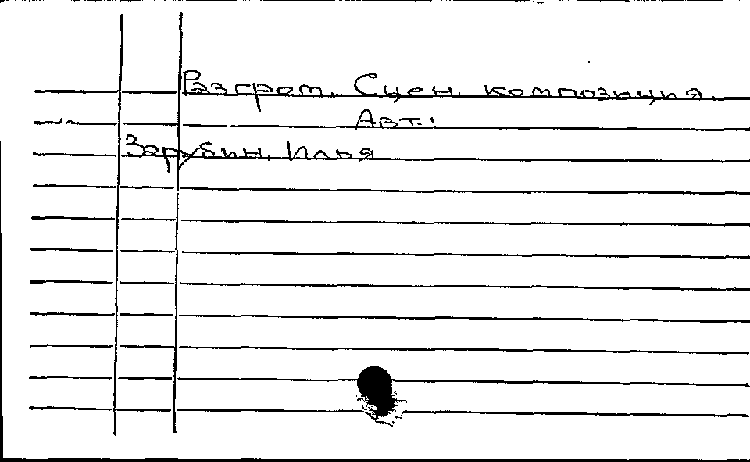 Разгром. Сцен. композиция.
Авт.:
Зарубин, Илья